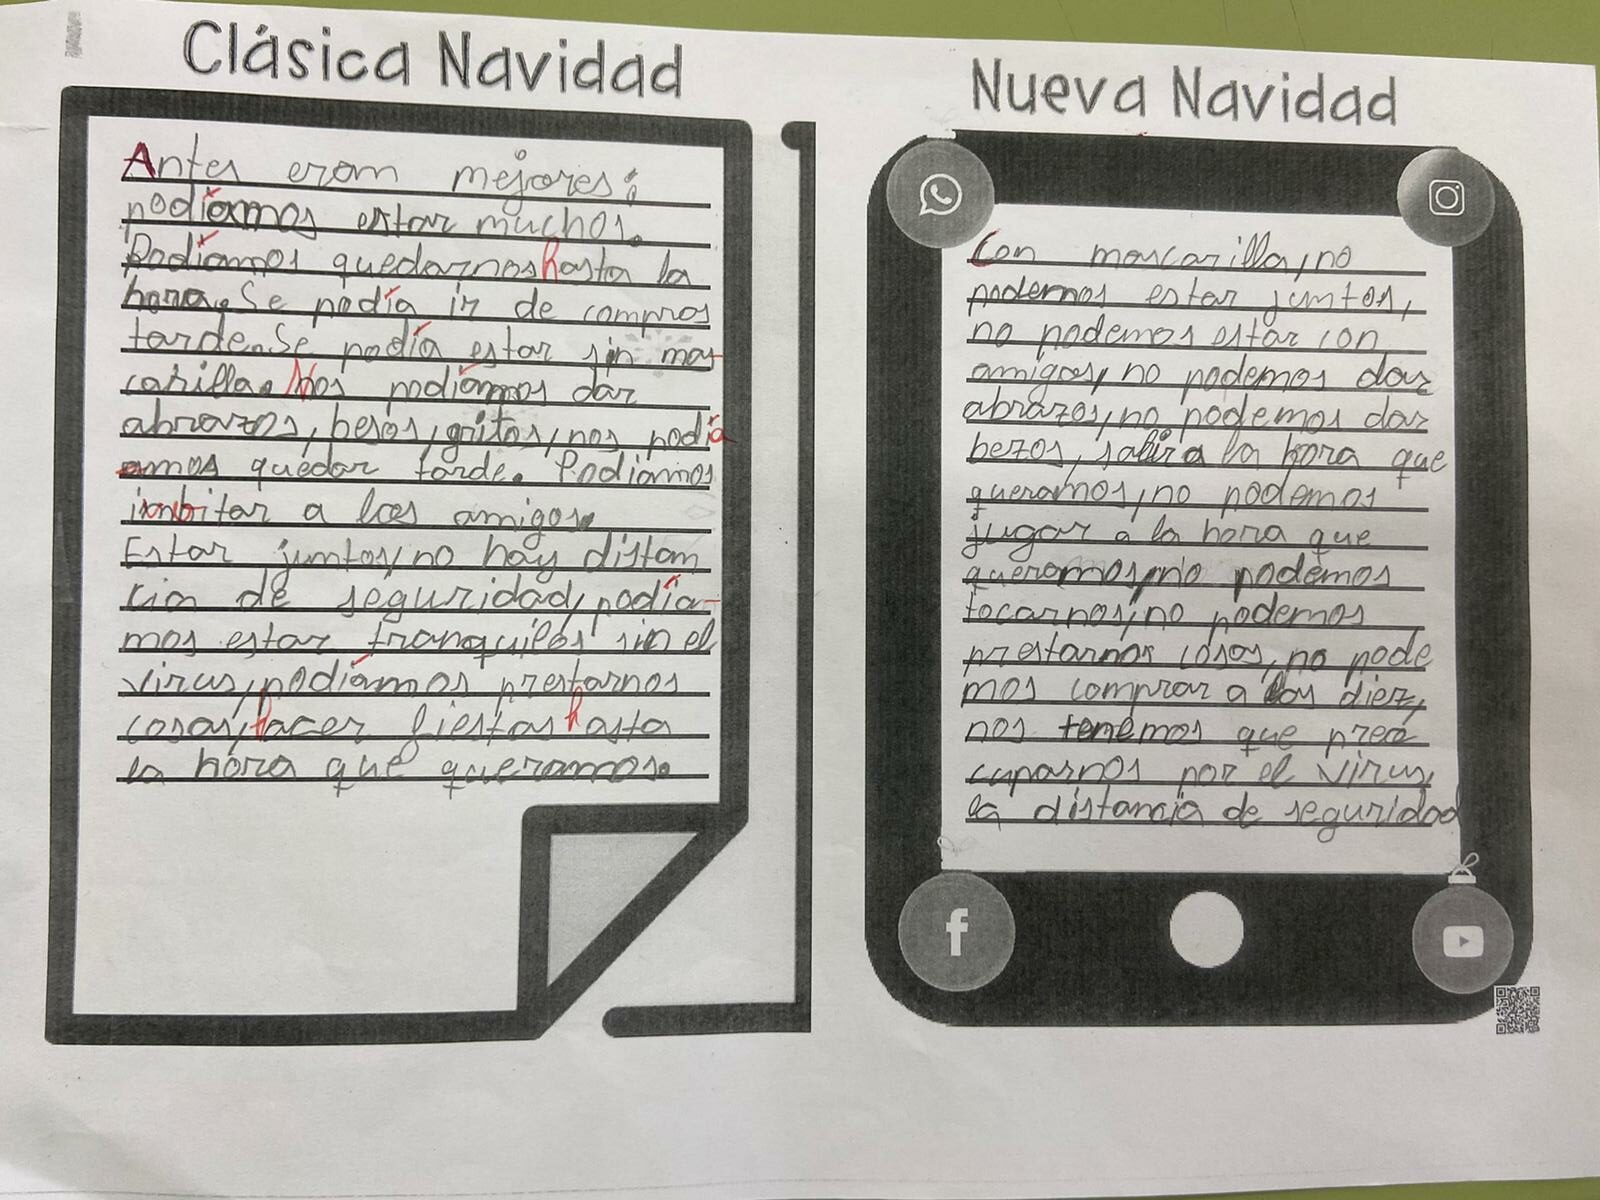 Clásica Navidad
Antes eram mejores:
podíamos estar muchos.
Podíamos quedarnos hasta la
hora. Se podía ir de compras
tarde. Se podía estar sin mas-
carilla. Nos podíamos dar
abrazos, besos, gritos, nos podía
amos quedar tarde. Podiamos
a los amigos.
Estar juntos, no hay distan
cia de seguridad, podía-
mos estar tranquilos sin el
virus, podíamos prestarnos
cosas, hacer fiestas hasta
la hora que queramos.
Nueva Navidad
Con mascarilla, no
podemos estar juntos,
no podemos estar con
amigos, no podemos dar
abrazos, no podemos dar
bezos, salir a la hora que
queramos, no podemos
jugar a la hora que
queramos, no podemos
tocarnos, no podemos
prestarnos cosas, no pode
mos comprar a las diez,
nos tenemos que preo
cuparnos por el virus,
la distancia de seguridad